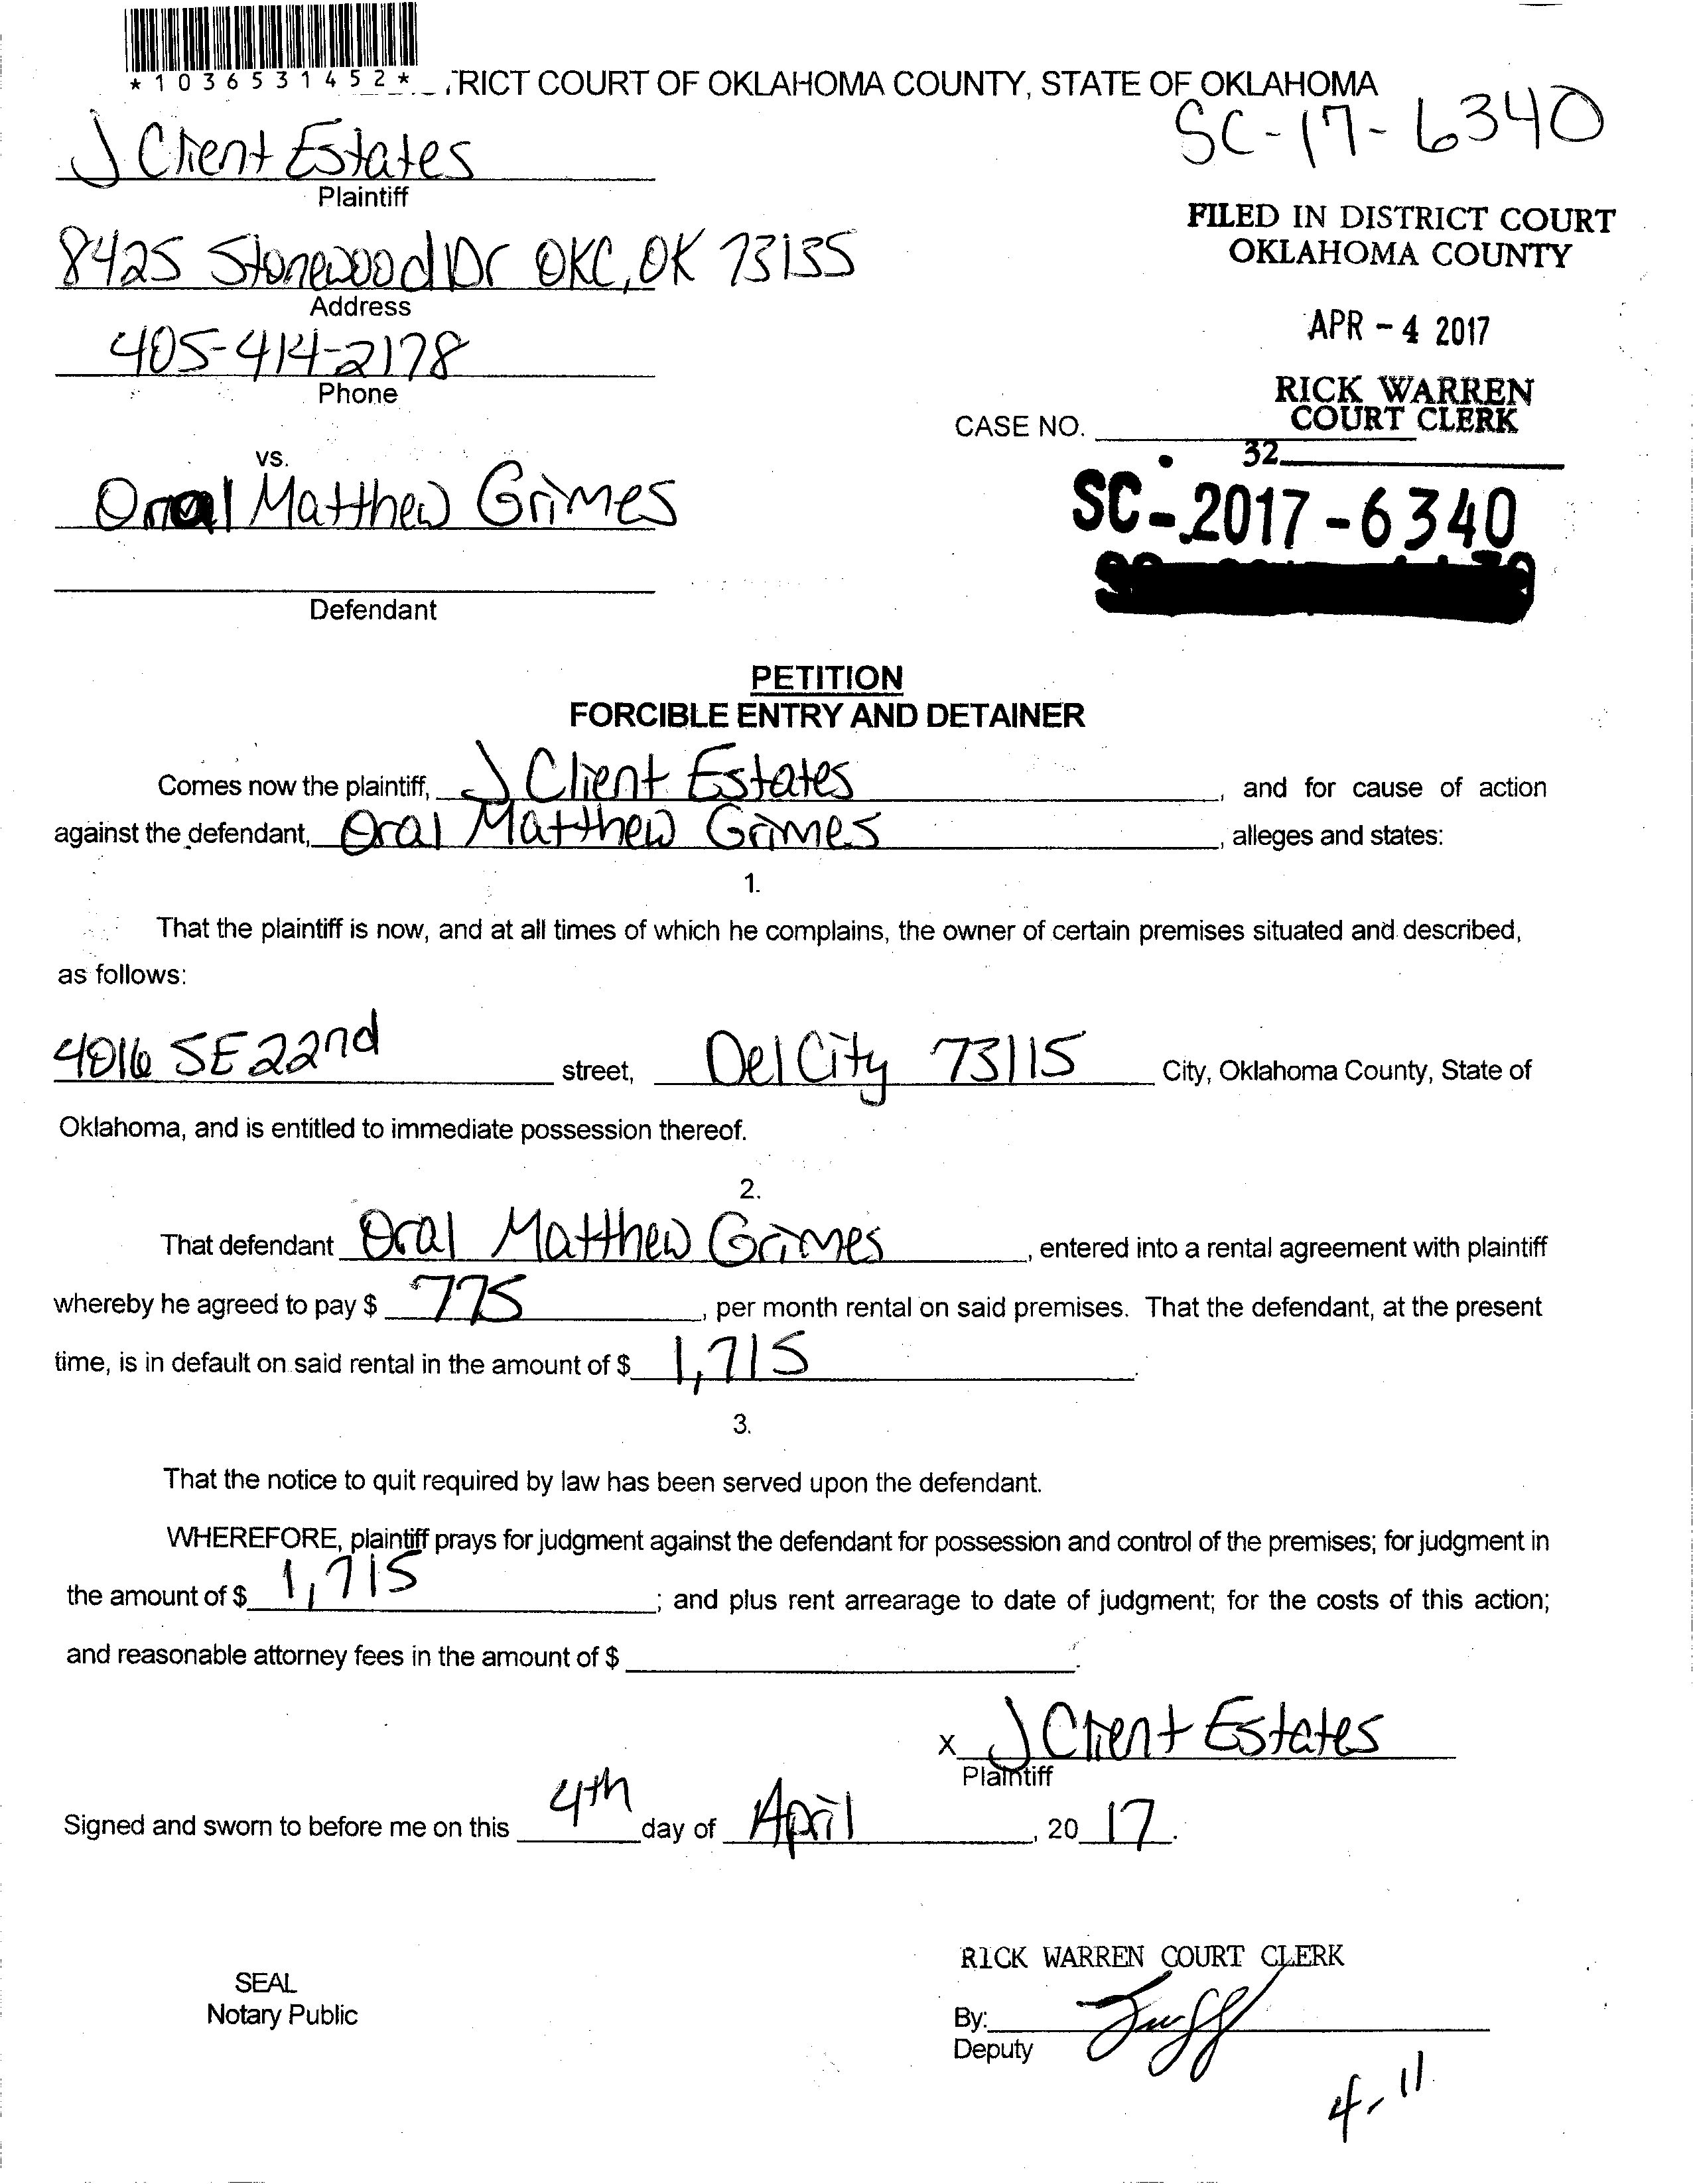 *1036531452*
TRICT COURT OF OKLAHOMA COUNTY, STATE OF OKLAHOMA
SC-17-6340
J Client Estates
Plaintiff
FILED IN DISTRICT COURT
OKLAHOMA COUNTY
8425 Stonewood Dr OKC, OK 73135
Address
APR - 4 2017
405-414-2178
Phone
RICK WARREN
COURT CLERK
CASE NO.
32
vs.
Oral Matthew Grimes
SC-2017-6340
Defendant
PETITION
FORCIBLE ENTRY AND DETAINER
Comes now the plaintiff, J Client Estates, and for cause of action
against the defendant, Oral Matthew Grimes, alleges and states:
1.
That the plaintiff is now, and at all times of which he complains, the owner of certain premises situated and described,
as follows:
4016 SE 22nd street, Del City 73115 City, Oklahoma County, State of
Oklahoma, and is entitled to immediate possession thereof.
2.
That defendant Oral Matthew Grimes, entered into a rental agreement with plaintiff
whereby he agreed to pay $ 775, per month rental on said premises. That the defendant, at the present
time, is in default on said rental in the amount of $ 1,715.
3.
That the notice to quit required by law has been served upon the defendant.
WHEREFORE, plaintiff prays for judgment against the defendant for possession and control of the premises; for judgment in
the amount of $ 1,715; and plus rent arrearage to date of judgment; for the costs of this action;
and reasonable attorney fees in the amount of $.
x J Client Estates
Plaintiff
Signed and sworn to before me on this 4th day of April, 20 17.
RICK WARREN COURT CLERK
SEAL
Notary Public
By:
Deputy
4-11